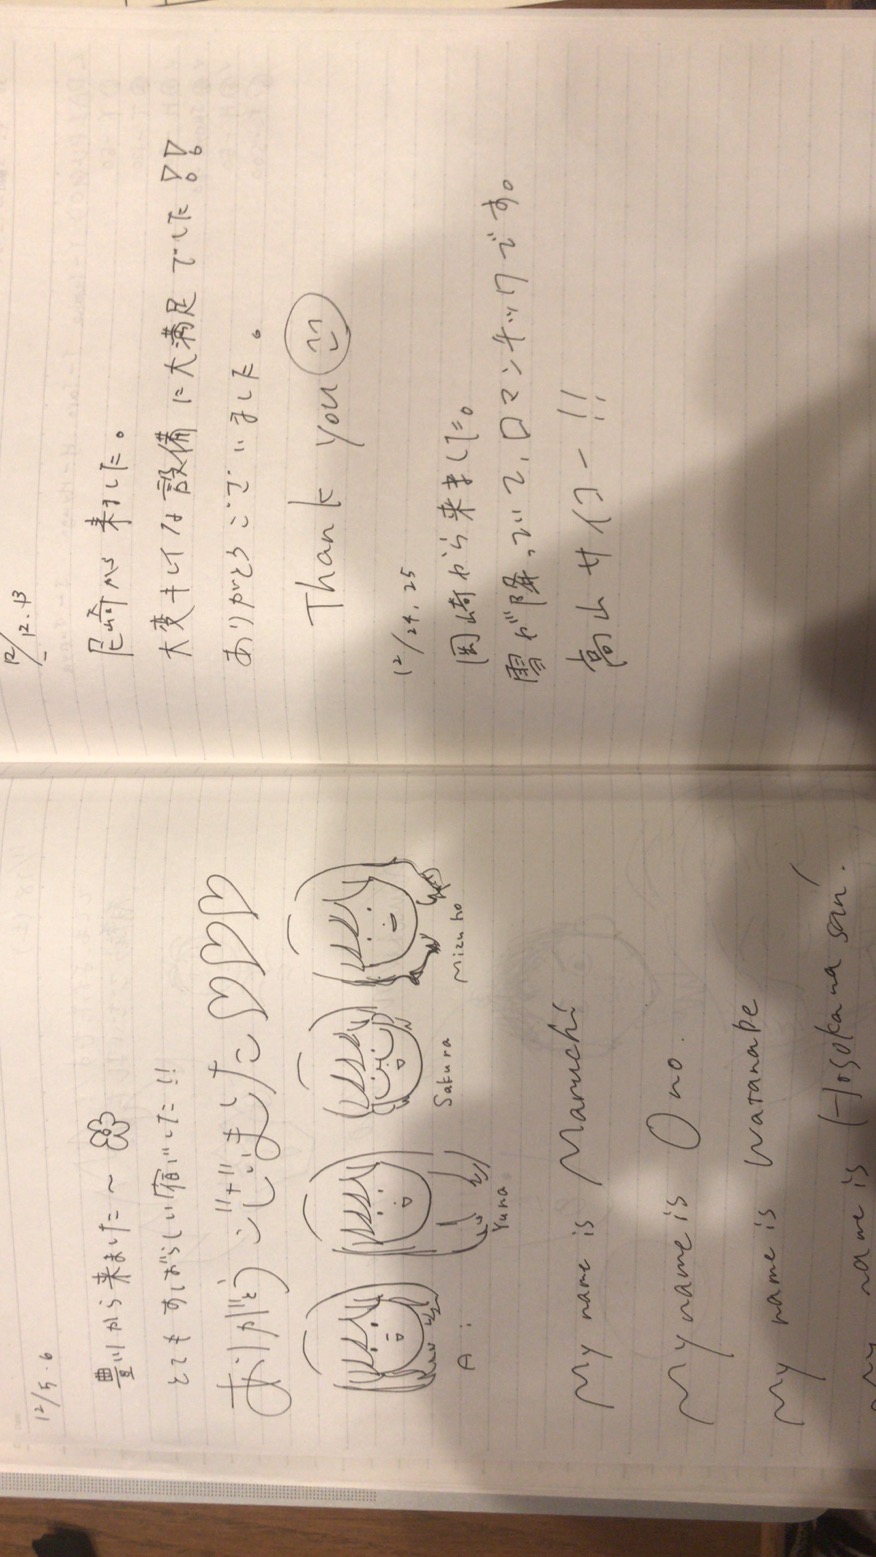 12/5.6
豊川から来ました〜
とてもすばらしい宿でした!!
ありがとうございました♡♡♡
Ai
Yuna
Sakura
Mizuho
My name is Maruchi
My name is Ono.
My name is Watanabe
My name is Hosokawa san.
12/12.13
尼崎から来ました。
大変キレイな設備に大満足でした!!
ありがとうございました。
Thank you
12/24.25
岡崎から来ました。
雪が降っていて、ロマンチックです。
高山サイコー!!